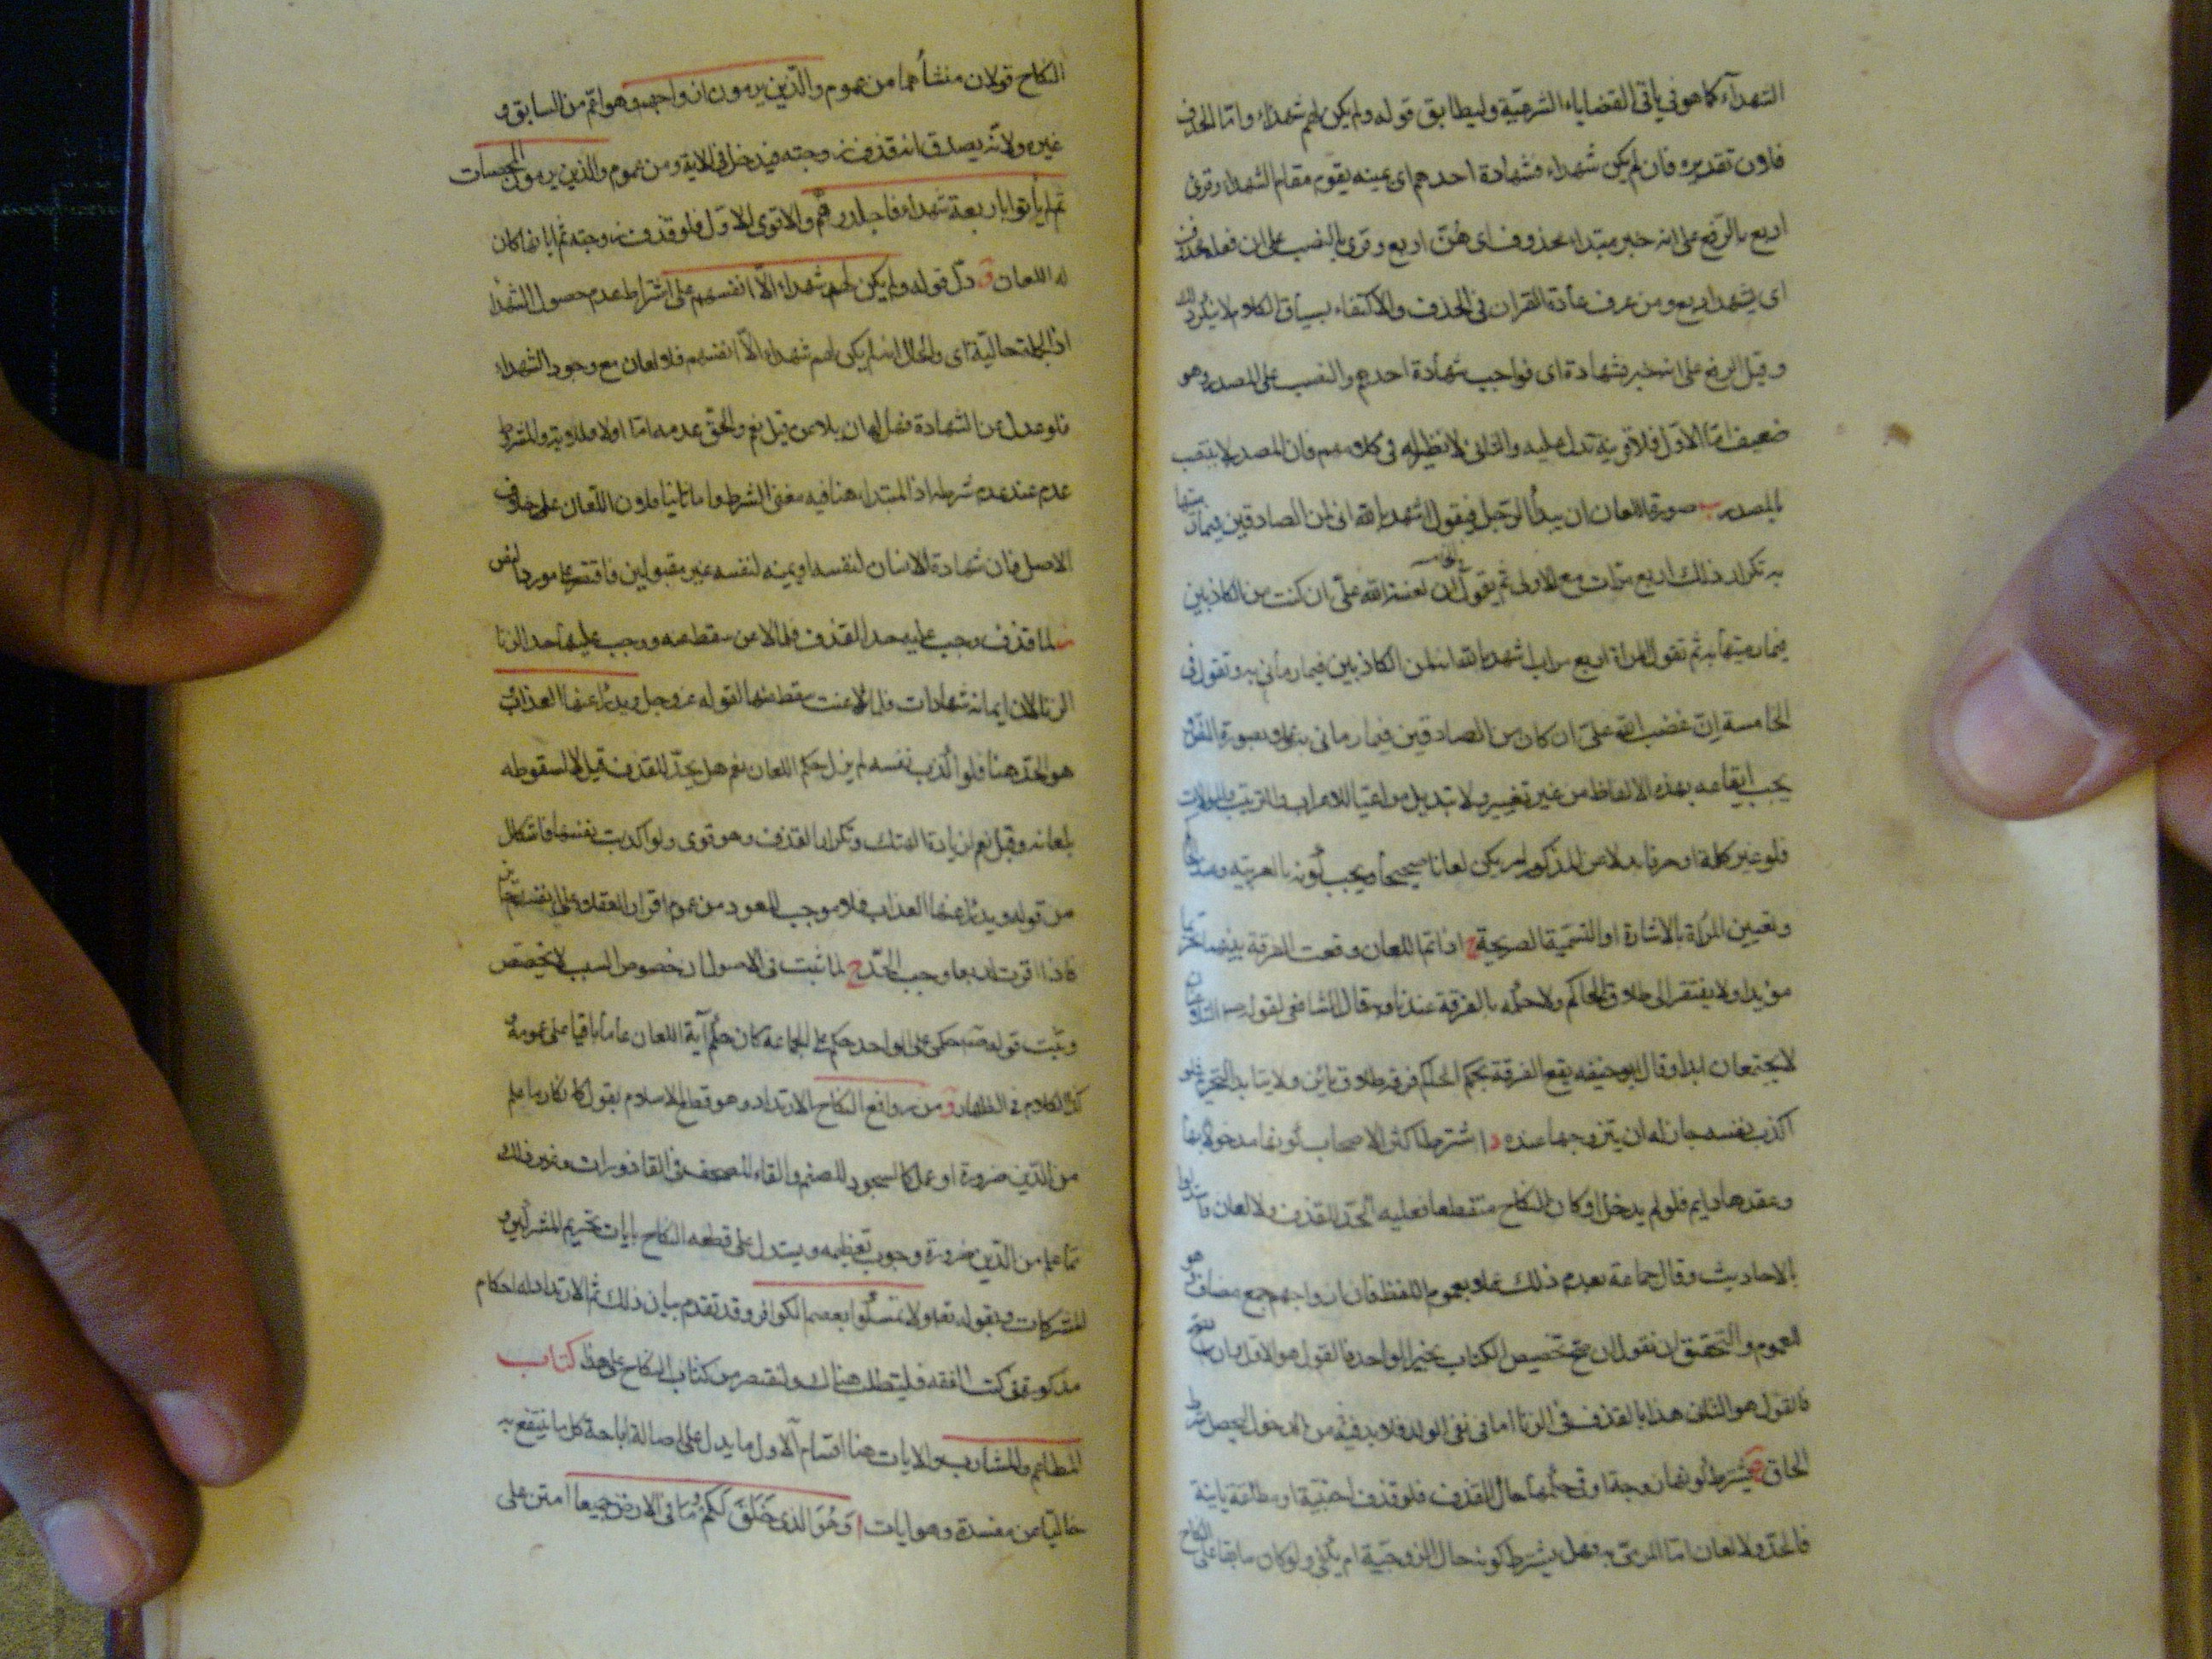 الشهدآء كما هو في باقي القضاياء الشرعية وليطابق قوله ولم يكن لهم شهداء وامّا الحذف
فلان تقديره فان لم يكن شهداء فشهادة احدهم اي يمينه يقوم مقام الشهداء وقرئ
اربع بالرّفع على انه خبر مبتداء محذوف اي هنّ اربع وقرئ بالنصب على ان فعله محذوف
اي يشهد اربع ومن عرف عادة القران في الحذف والاكتفاء بسياق الكلام لا ينكر ذلك
وقيل الرفع على انه خبر فشهادة اي فواجب شهادة احدهم والنصب على المصدر وهو
ضعيف امّا الاوّل فلا قرينة تدل عليه والثاني لا نظير له في كلامهم فان المصدر لا ينتصب
بالمصدر ب صورة اللعان ان يبدأ الرّجل فيقول اشهد بالله اني لمن الصادقين فيما رميتها
به تكرار ذلك اربع مرّات مع الاولى ثم يقول في الخامسة ان لعنة الله عليّ ان كنت من الكاذبين
فيما رميتها به ثم تقول المراة اربع مرات اشهد بالله انه لمن الكاذبين فيما رماني به وتقول في
الخامسة انّ غضب الله عليّ ان كان من الصادقين فيما رماني به
يجب ايقاعه بهذه الالفاظ من غير تغيير ولا تبديل مراعيا للاعراب والترتيب والموالات
فلو غير كلمة او حرفا بدلا عن المذكور لم يكن لعانا صحيحا ويجب كونه بالعربيّة وعند الحاكم
وتعيين المرأة بالاشارة او التسمية الصريحة ج اذا تما اللعان وقعت الفرقة بينهما تحريما
مؤبدا ولا يفتقر الى طلاق الحاكم ولا حكمه بالفرقة عندنا وبه قال الشافعي لقوله ص المتلاعنان
لا يجتمعان ابدا وقال ابو حنيفه يقع الفرقة بحكم الحاكم فرقة طلاق بائن ولا يتابد التحريم فلو
اكذب نفسه جاز له ان يتزوجها عنده د اشترط اكثر الاصحاب كونها مدخولا بها
وعقدها دايم فلو لم يدخل او كان النكاح منقطعا فعليه الحدّ للقذف ولا لعان واستدلوا
بالاحاديث وقال جماعة بعدم ذلك عملا بعموم اللفظ فان ازواجهم جمع مضاف وهو
للعموم والتحقيق ان نقول ان صح تخصيص الكتاب بخبر الواحد فالقول هو الاول وان لم يصح
فالقول هو الثاني هذا بالقذف في الزنا اما في نفي الولد فلا بد فيه من الدخول ليحصل شرط
الحاق ه يشترط كونها زوجة او في حكمها حال القذف فلو قذف اجنبية او مطلقة باينة
فالحدّ ولا لعان امّا المرمي به فهل يشترط كونه حال الزوجيّة ام يكفي ولو كان سابقا على النكاح
النكاح قولان منشأهما من عموم والّذين يرمون ازواجهم وهو اعم من السابق و
غيره ولانّه يصدق انه قذف زوجته فيدخل في الاية ومن عموم والذين يرمون المحصنات
ثم لم يأتوا باربعة شهداء فاجلدوهم والاقوى الاوّل فلو قذف زوجته ثم ابانها كان
له اللعان و دلّ قوله ولم يكن لهم شهداء الّا انفسهم على اشتراط عدم حصول الشهدا
اذ الجملة حالية اي والحال انه لم يكن لهم شهداء الّا انفسهم فلا لعان مع وجود الشهداء
فلو عدل عن الشهادة فهل له ان يلاعن قيل نعم والحقّ عدمه امّا اولا فللاية والمشروط
عدم عند عدم شرطه اذ المبتداء هنا فيه معنى الشرط واما ثانيا فلان اللّعان على خلاف
الاصل فان شهادة الانسان لنفسه او يمينه لنفسه غير مقبولين فاقتصر على مورد النص
ز لما قذف وجب عليه حد القذف فلما لاعن سقط عنه ووجب عليها حد الزنا
الزنا لان ايمانه شهادات فلما لاعنت سقط عنها لقوله عز وجل ويدرأ عنها العذاب
هو الحدّ هنا فلو اكذب نفسه لم يزل حكم اللعان نعم هل يحدّ للقذف قيل لا لسقوطه
بلعانه وقيل نعم لزيادة الهتك وتكرار القذف وهو قوي ولو اكذبت نفسها فاشكال
من قوله ويدرأ عنها العذاب فلا موجب للعود من عموم اقرار العقلاء على انفسهم جايز
فاذا اقرت اربعا وجب الحدّ ح لما ثبت في الاصول ان خصوص السبب لا يخصّص
وثبت قوله ص حكمي على الواحد حكمي على الجماعة كان حكم آية اللعان عاما باقيا على عمومه
كذا الكلام في الظهار و من روافع النكاح الارتداد وهو قطع الاسلام بقول كانكار ما علم
من الدّين ضرورة او عمل كالسجود للصنم والقاء المصحف في القاذورات وغير ذلك
مما علم من الدّين ضرورة وجوب تعظيمه ويستدل على قطعه النكاح بايات تحريم المشركين و
المشركات وبقوله تعه ولا تمسكوا بعصم الكوافر وقد تقدم بيان ذلك ثم الارتداد له احكام
مذكورة في كتب الفقه فليتطلب هناك ولنقتصر من كتاب النكاح على هذا كتاب
المطاعم والمشارب والايات هنا اقسام الاول ما يدل على اصالة اباحة كل ما ينتفع به
خاليا عن مفسدة وهو ايات ا وَهُوَ الذي خَلَقَ لَكُمْ مَا في الارض جميعا امتن على